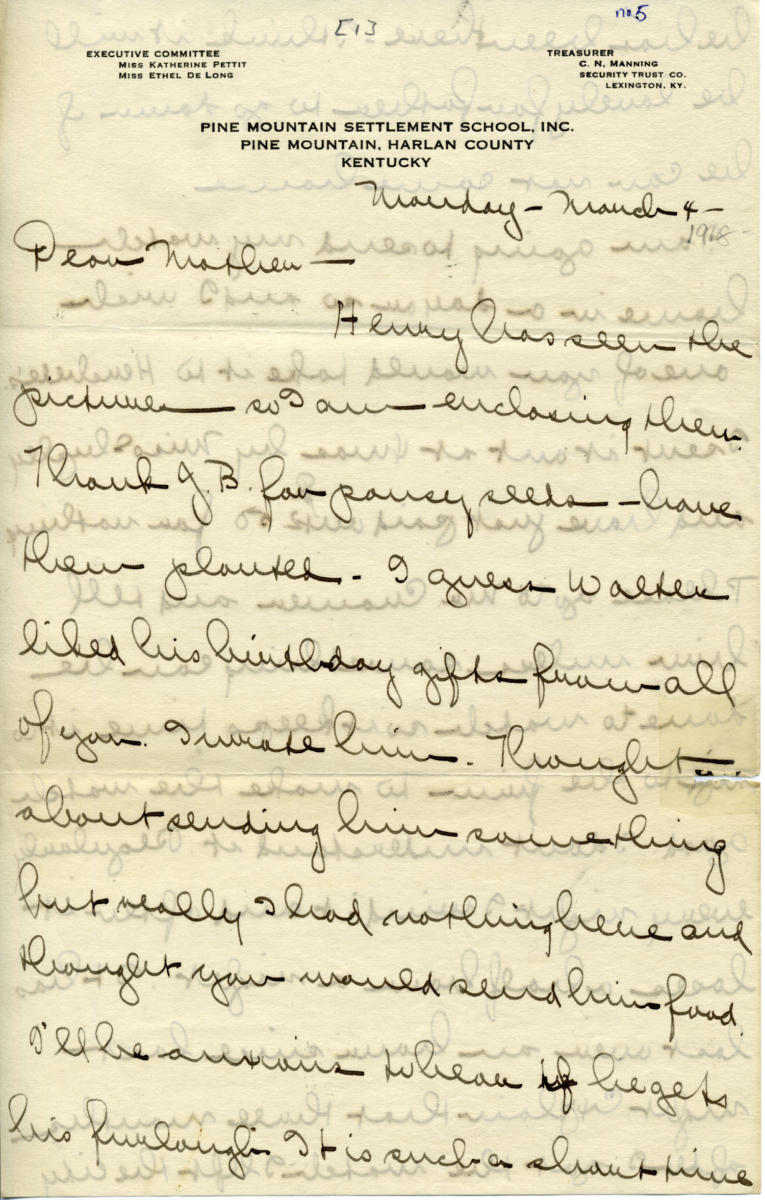 [1]
no 5
EXECUTIVE COMMITTEE
MISS KATHERINE PETTIT
MISS ETHEL DE LONG
TREASURER
C. N. MANNING
SECURITY TRUST CO.
LEXINGTON, KY.
PINE MOUNTAIN SETTLEMENT SCHOOL, INC.
PINE MOUNTAIN, HARLAN COUNTY
KENTUCKY
Monday - March 4 -
1918 -
Dear Mother -
Henry has seen the
pictures - so I am enclosing them.
Thank J.B. for pansy seeds - have
them planted. - I guess Walter
liked his birthday gifts from all
of you. I wrote him. Thought
about sending him something
but really I had nothing here and
thought you would send him food.
I'll be anxious to hear if he gets
his furlough. It is such a short time